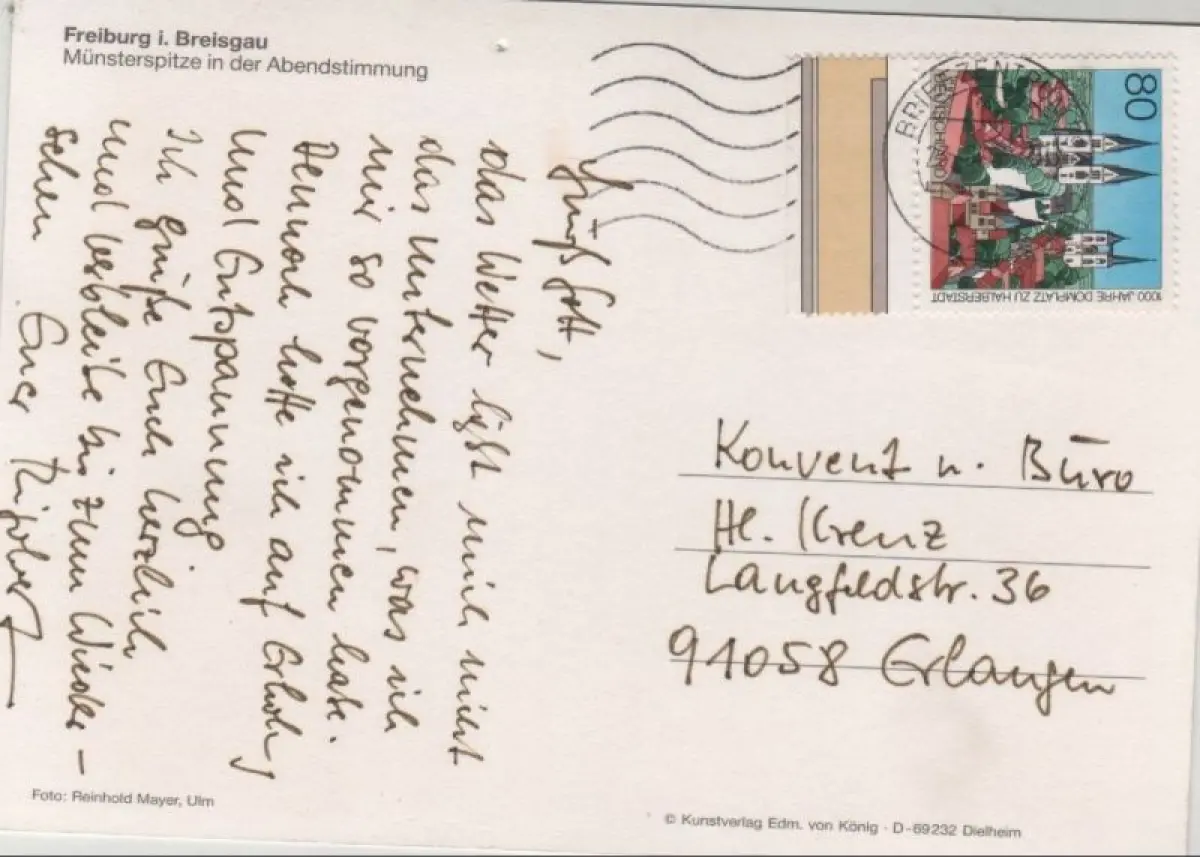 Freiburg i. Breisgau
Münsterspitze in der Abendstimmung
Grüß Gott,
das Wetter läßt mich nicht
das unternehmen, was ich
mir so vorgenommen habe.
Dennoch hoffe ich auf Erholung
und Entspannung
Ich grüße Euch herzlich
und verbleibe bis zum Wieder-
sehen Euer
80
1000 JAHRE DOMPLATZ ZU HALBERSTADT
BRIEFZENTRUM
Konvent u. Büro
Hl. Kreuz
Langfeldstr. 36
91058 Erlangen
Foto: Reinhold Mayer, Ulm
© Kunstverlag Edm. von König · D-69232 Dielheim